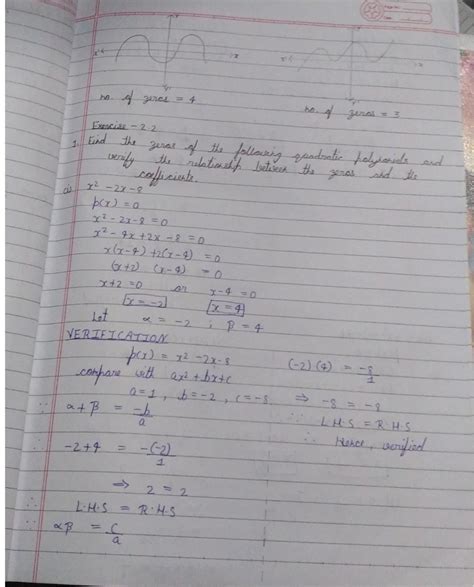 Y
Y
X'
X
X'
Y'
Y'
no. of zeros = 4
no. of zeros = 3
Exercise - 2.2
1. Find the zeros of the following quadratic polynomials and
verify the relationship between the zeros and the
coefficients.
(i) x² - 2x - 8
p(x) = 0
x² - 2x - 8 = 0
x² - 4x + 2x - 8 = 0
x(x-4) + 2(x-4) = 0
(x+2) (x-4) = 0
x+2 = 0 or x-4 = 0
x = -2 x = 4
Let α = -2 ; β = 4
VERIFICATION
p(x) = x² - 2x - 8
compare with ax² + bx + c
a = 1, b = -2, c = -8
∵ α + β = -b/a
-2+4 = -(-2)/1
⇒ 2 = 2
∴ L.H.S = R.H.S
∵ αβ = c/a
(-2)(4) = -8/1
⇒ -8 = -8
∴ L.H.S = R.H.S
∴ Hence, verified